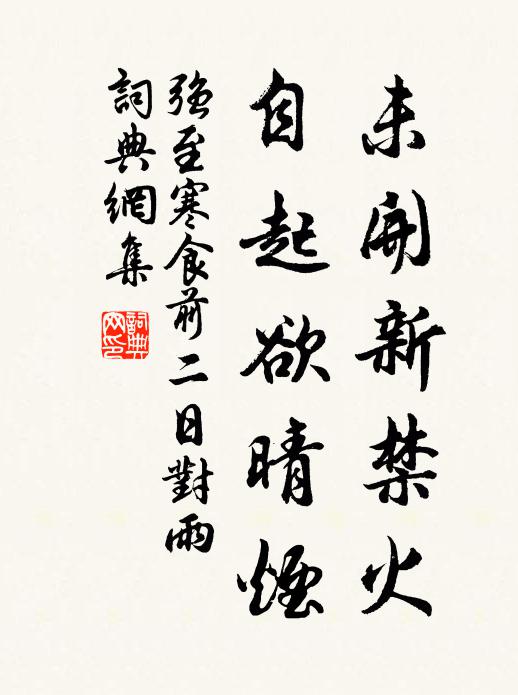 未開新禁火
自起欲晴煙
強至寒食前二日對雨
詞典網集
詞典
网印